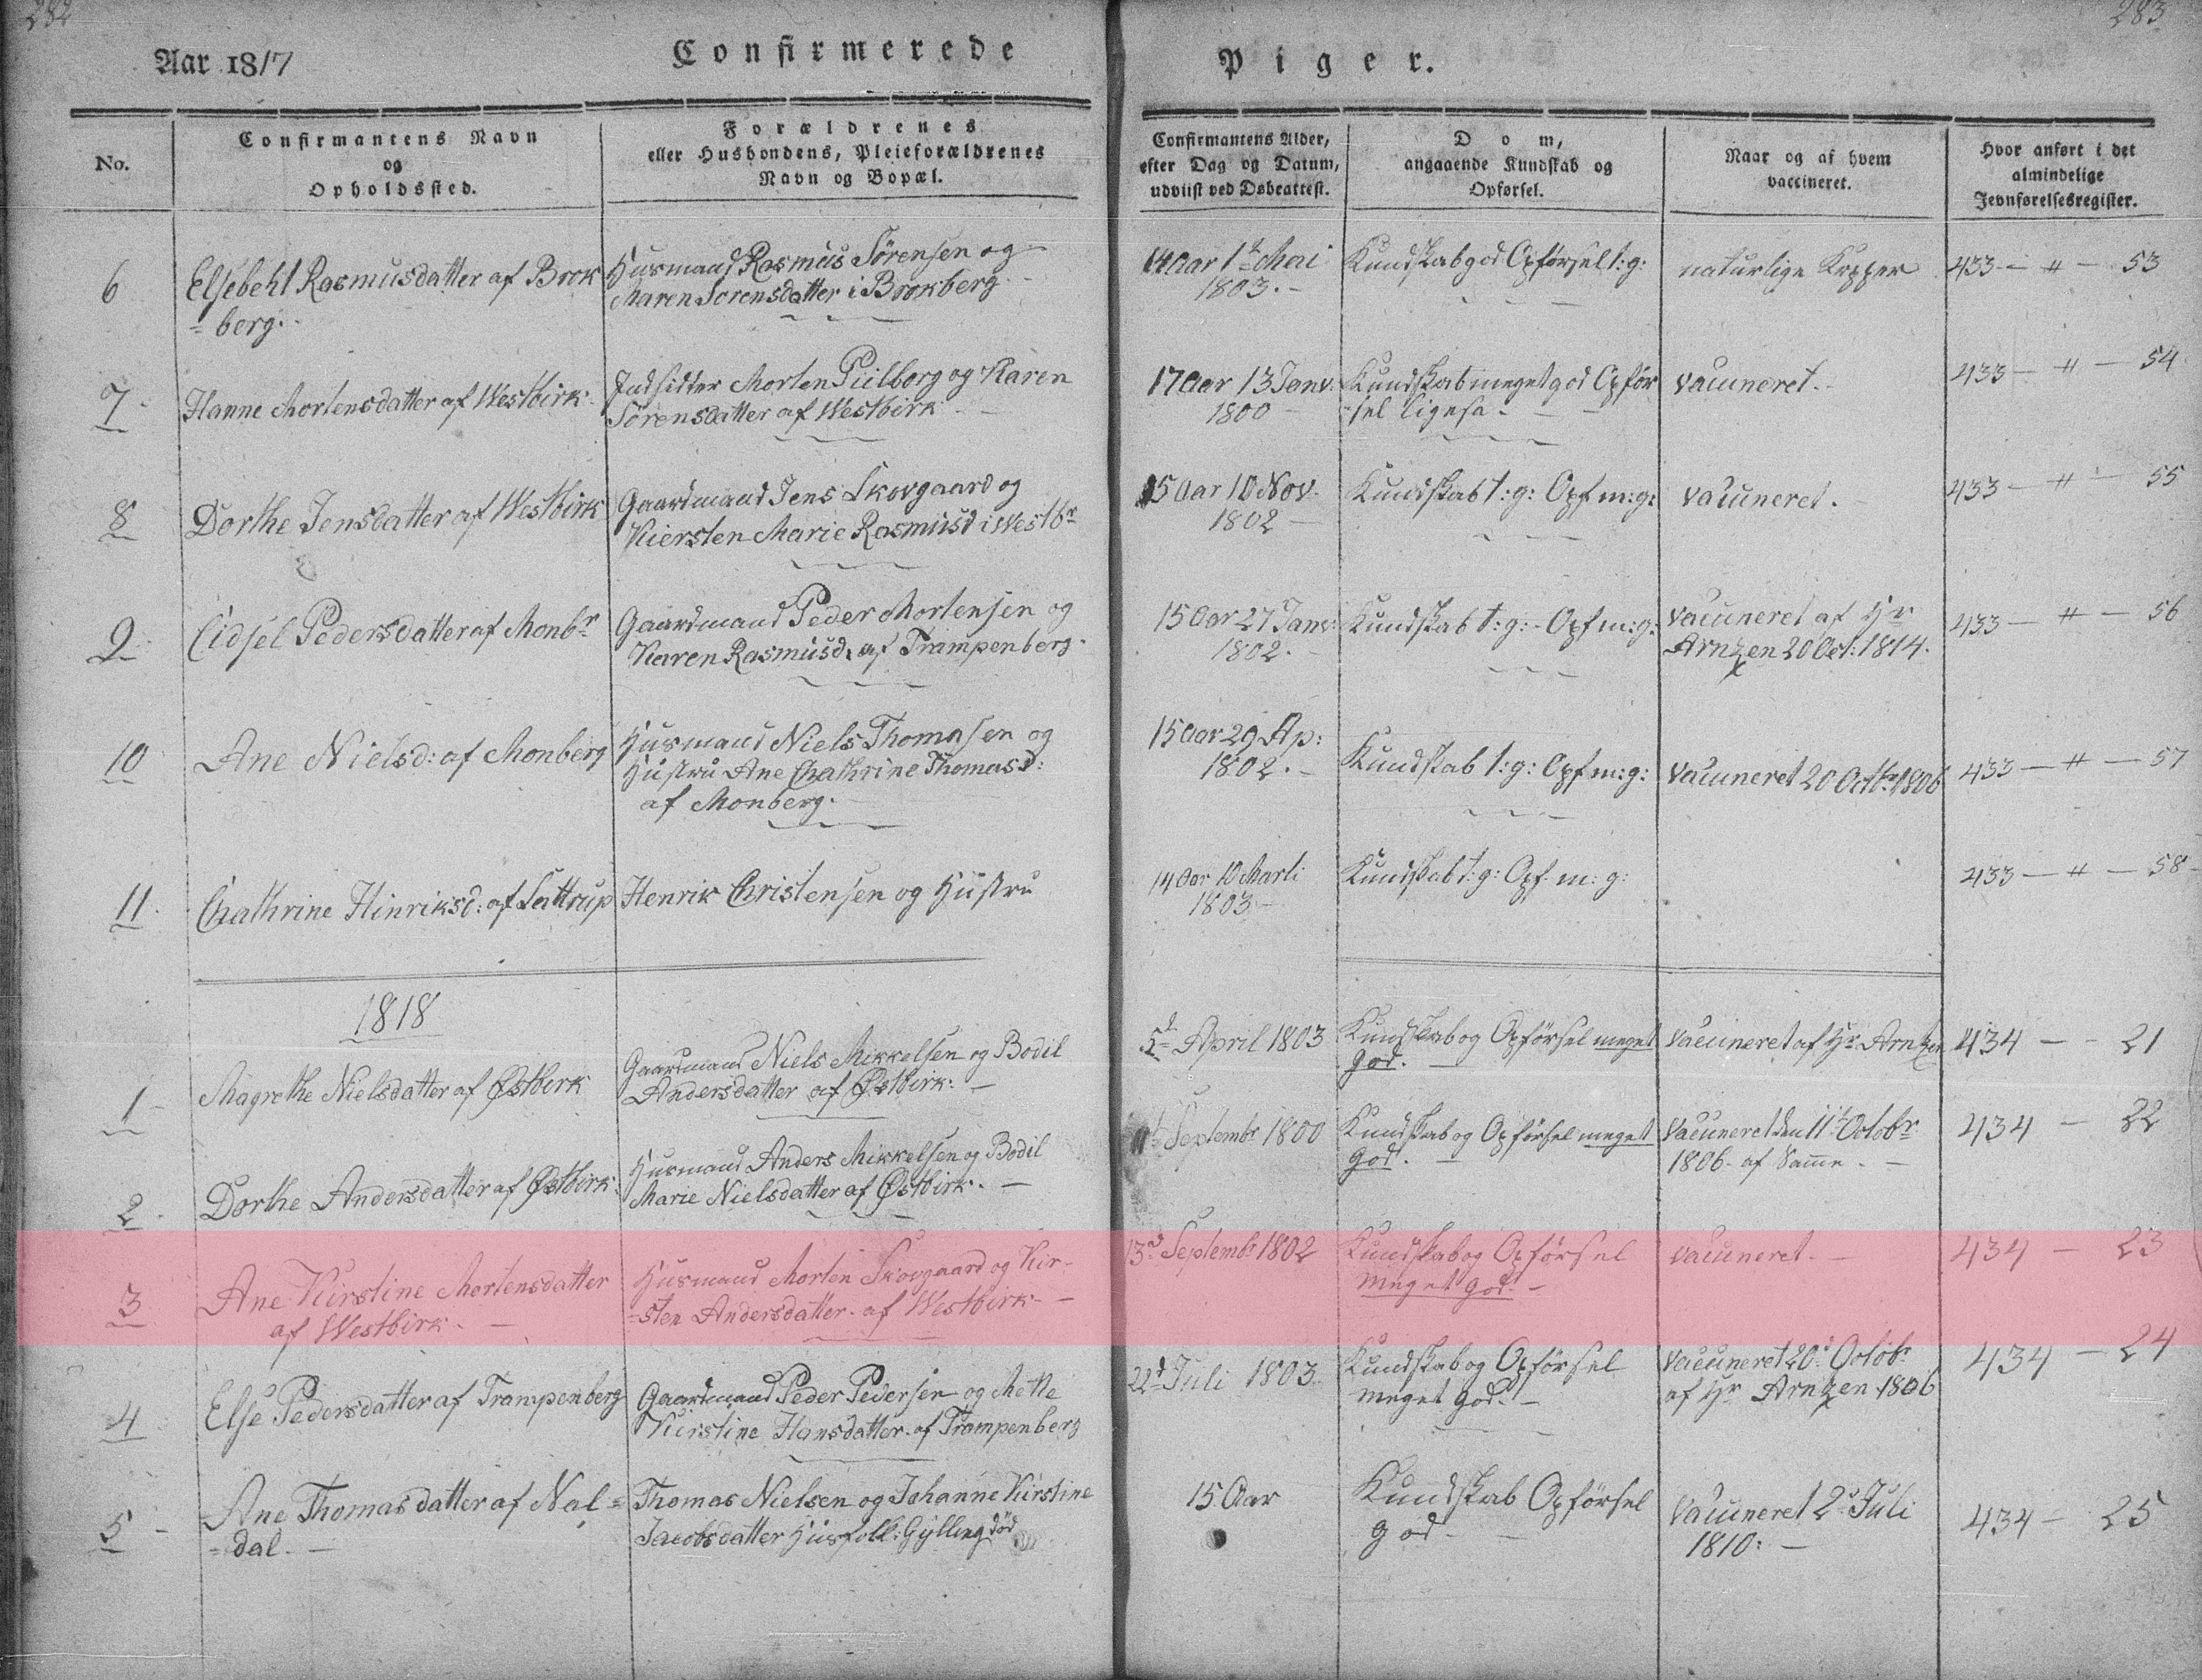 282
283
Aar 1817
Confirmerede
Piger.
No.
Confirmantens Navn
og
Opholdssted.
Forældrenes
eller Husbondens, Pleieforældrenes
Navn og Bopæl.
Confirmantens Alder,
efter Dag og Datum,
udviist ved Døbeattest.
Dom,
angaaende Kundskab og
Opførsel.
Naar og af hvem
vaccineret.
Hvor anført i det
almindelige
Jevnførelsesregister.
6
Elsebeht Rasmusdatter af Brok
=berg.
Husmand Rasmus Sørensen og
Maren Sorensdatter i Brokberg
14 Aar 1t Mai
1803.
Kundskab god Opførsel t:g:
naturlige Kopper
433 - " - 53
7
Hanne Mortensdatter af Westbirk
Indsidder Morten Piilborg og Karen
Sörensdatter af Westbirk
17 Aar 13 Janv.
1800
Kundskab meget god Opför
-sel ligesa.
vaccineret.
433 - " - 54
8
Dorthe Jensdatter af Westbirk
Gaardmand Jens Skovgaard og
Kiersten Marie Rasmusd i Westbr
15 Aar 10 Nov.
1802
Kundskab t:g: Opf m:g:
vaccineret.
433 - " - 55
9
Cidsel Pedersdatter af Monbr
Gaardmand Peder Mortensen og
Karen Rasmusd. af Trampenberg
15 Aar 27 Janv:
1802.
Kundskab t:g: - Opf m:g:
vaccineret af Hr
Arntzen 20 Oct: 1814.
433 - " - 56
10
Ane Nielsd: af Monberg
Husmand Niels Thomasen og
Hustru Ane Chathrine Thomasd:
af Monberg.
15 Aar 29 Ap:
1802.
Kundskab t:g: Opf m:g:
vaccineret 20 Octbr 1806
433 - " - 57
11.
Chathrine Hinriksd: af Sattrup
Henrik Christensen og Hustru
14 Aar 10 Marti
1803
Kundskab t:g: Opf. m:g:
433 - " - 58
1818
1
Magrethe Nielsdatter af Østbirk
Gaardmand Niels Mikkelsen og Bodil
Andersdatter af Østbirk.
5t April 1803
Kundskab og Opförsel meget
god.
vaccineret af Hr Arntzen
434 - - 21
2.
Dorthe Andersdatter af Østbirk
Husmand Anders Mikkelsen og Bodil
Marie Nielsdatter af Østbirk.
Septembr 1800
Kundskab og Opförsel meget
god.
vaccineret den 11t Octobr
1806. af Samme.
434 - 22
3
Ane Kirstine Mortensdatter
af Westbirk.
Husmand Morten Skovgaard og Kir-
=sten Andersdatter af Westbirk
13d Septembr 1802
Kundskab og Opførsel
meget god.
vaccineret.
434 - 23
4
Else Pedersdatter af Trampenberg
Gaardmand Peder Pedersen og Mette
Kirstine Hansdatter af Trampenberg
22d Juli 1803
Kundskab og Opførsel
meget god.
vaccineret 20d Octobr
af Hr Arntzen 1806
434 - 24
5
Ane Thomasdatter af Nal=
=dal.
Thomas Nielsen og Johanne Kirstine
Jacobsdatter Husfolk: Gylling død
15 Aar
Kundskab Opförsel
god
vaccineret 2d Juli
1810:
434 - 25